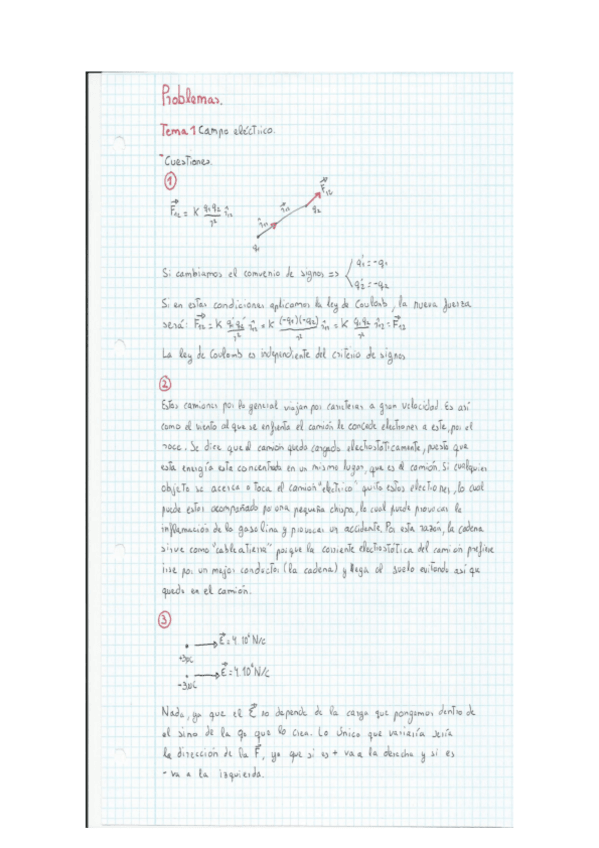 Problemas.
Tema 1 Campo eléctrico.
- Cuestiones.
1
F₁₂ = K q₁q₂/r² r̂₁₂
r̂₁₂ r̂₁₂ F₁₂
q₁ q₂
Si cambiamos el convenio de signos => { q₁' = -q₁
q₂' = -q₂
Si en estas condiciones aplicamos la ley de Coulomb, la nueva fuerza
será: F₁₂ = K q₁'q₂'/r² r̂₁₂ = K (-q₁)(-q₂)/r² r̂₁₂ = K q₁q₂/r² r̂₁₂ = F₁₂
La ley de Coulomb es independiente del criterio de signos
2
Estos camiones por lo general viajan por carreteras a gran velocidad. Es así
como el viento al que se enfrenta el camión le concede electrones a este, por el
roce. Se dice que el camión queda cargado electrostáticamente, puesto que
esta energía está concentrada en un mismo lugar, que es el camión. Si cualquier
objeto se acerca o toca el camión "eléctrico" quita estos electrones, lo cual
puede estar acompañado por una pequeña chispa, lo cual puede provocar la
inflamación de la gasolina y provocar un accidente. Por esta razón, la cadena
sirve como "cable a tierra" porque la corriente electrostática del camión prefiere
irse por un mejor conductor (la cadena) y llega al suelo evitando así que
quede en el camión.
3
E = 4·10⁴ N/c
+3μC
E = 4·10⁴ N/c
-3μC
Nada, ya que el E no depende de la carga que pongamos dentro de
el sino de la q₀ que lo crea. Lo único que variaría sería
la dirección de la F, ya que si es + va a la derecha y si es
- va a la izquierda.